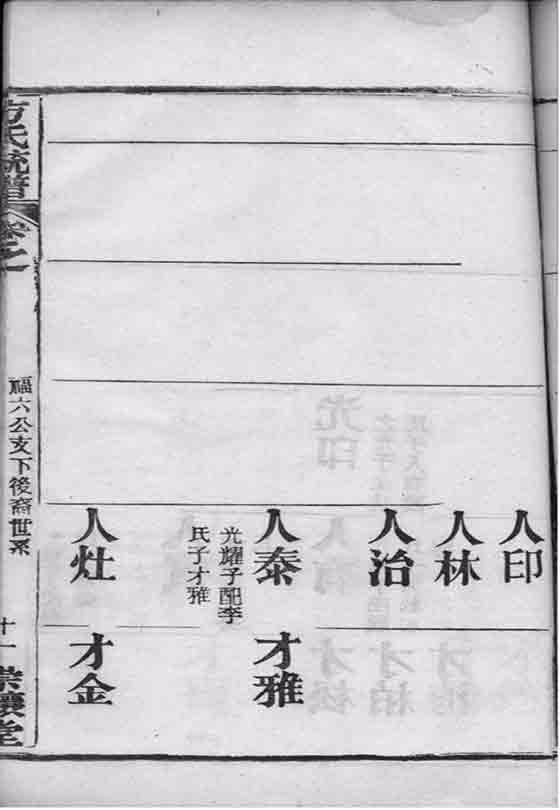 人印
人林
人治
人泰
光耀子配李
氏子才雅
人灶
才雅
才金
方氏統譜
卷之
福六公支下後裔世系
十一
堂